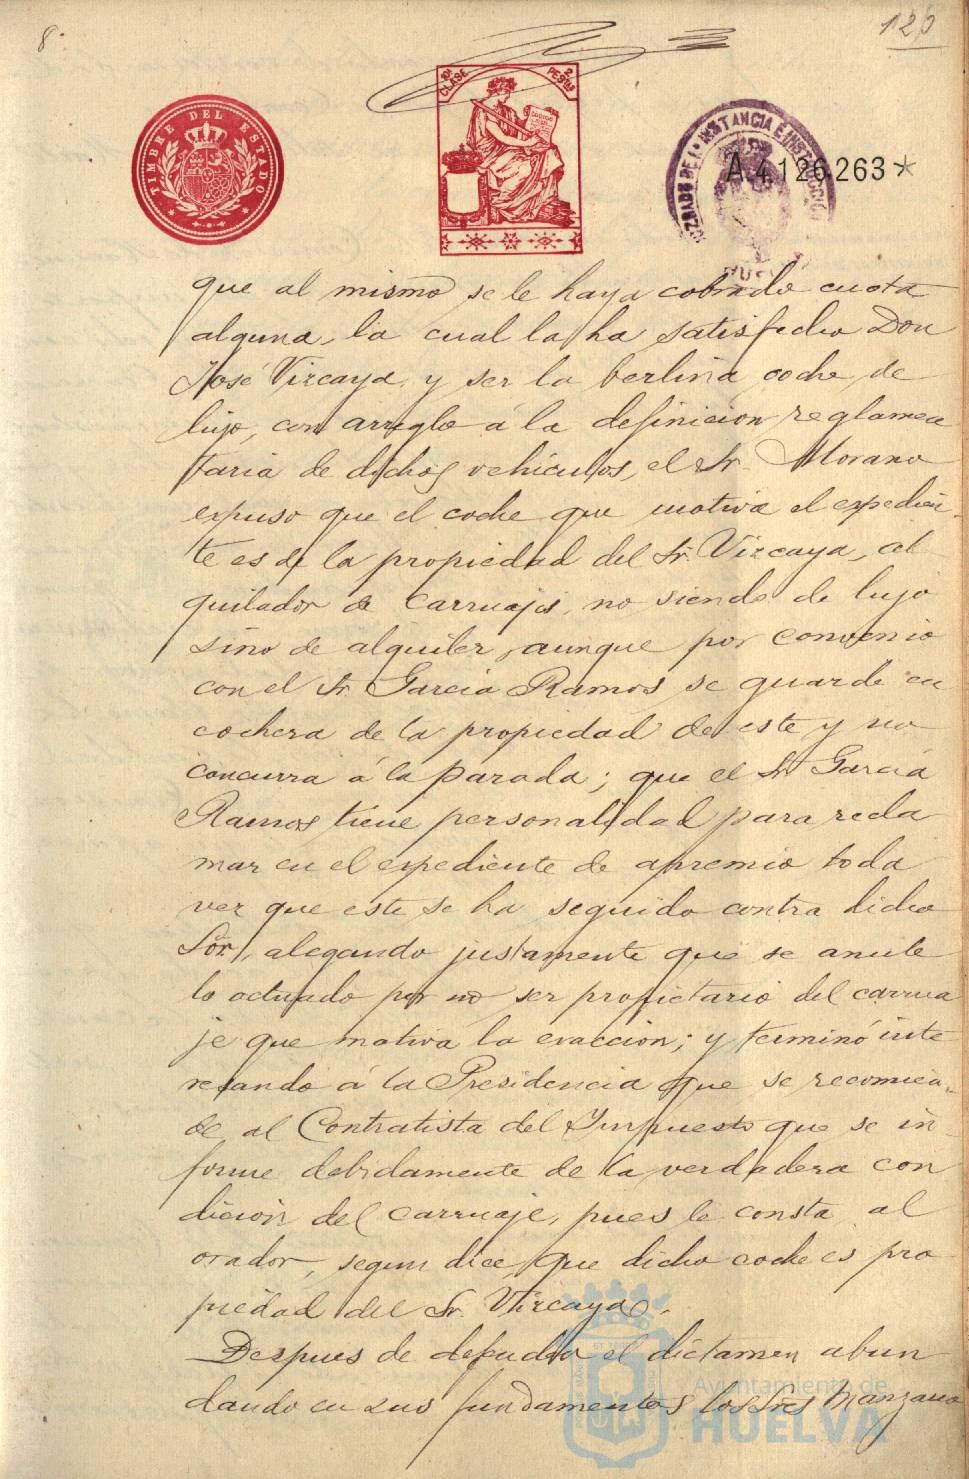 8.
120
TIMBRE DEL ESTADO
10ª CLASE
2 PESTAS
JUZGADO DE 1ª INSTANCIA E INSTRUCCION
HUELVA
A.4.126.263*
que al mismo se le haya cobrado cuota
alguna, la cual la ha satisfecho Don
José Vizcaya, y ser la berlina coche de
lujo, con arreglo á la definicion reglamen
taria de dichos vehículos, el Sr. Morano
expuso que el coche que motiva el expedien-
te es de la propiedad del Sr. Vizcaya, al
quilador de carruajes, no siendo de lujo
sino de alquiler, aunque por convenio
con el Sr. García Ramos se guarde en
cochera de la propiedad de este y no
concurra á la parada; que el Sr García
Ramos tiene personalidad para recla
mar en el expediente de apremio toda
vez que este se ha seguido contra dicho
Sor., alegando justamente que se anule
lo actuado por no ser propietario del carrua
je que motiva la exaccion; y terminó inte
resando á la Presidencia que se recomien-
de al Contratista del Impuesto que se in-
forme debidamente de la verdadera con
dicion del carruaje, pues le consta al
orador, segun dice, que dicho coche es pro
piedad del Sr. Vizcaya.
Despues de defender el dictamen abun
dando en sus fundamentos los Sres Manzano
Ayuntamiento de
HUELVA